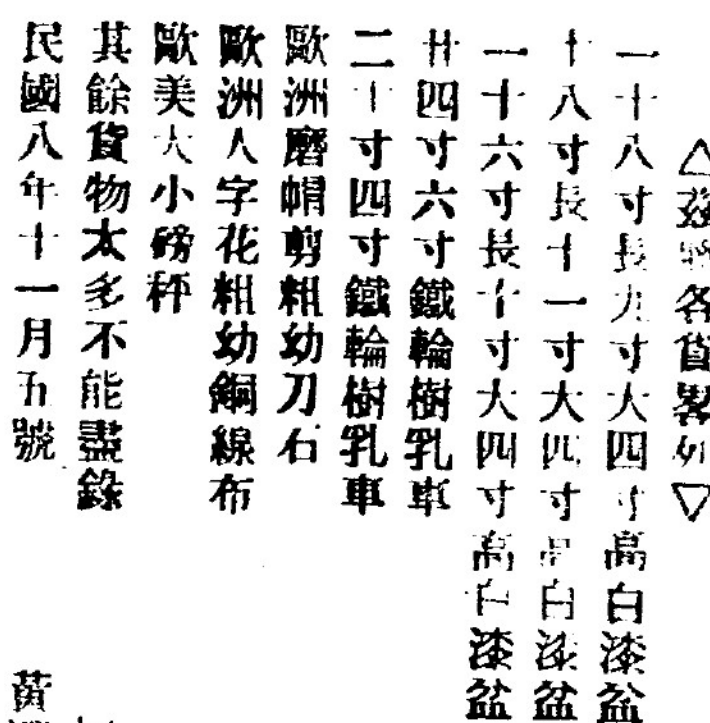 △茲將各貨畧列▽
一十八寸長九寸大四寸高白漆盆
十八寸長十一寸大四寸高白漆盆
一十六寸長十寸大四寸高白漆盆
廿四寸六寸鐵輪樹乳車
二十寸四寸鐵輪樹乳車
歐洲磨帽剪粗幼刀石
歐洲人字花粗幼銅線布
歐美大小磅秤
其餘貨物太多不能盡錄
民國八年十一月五號
黃